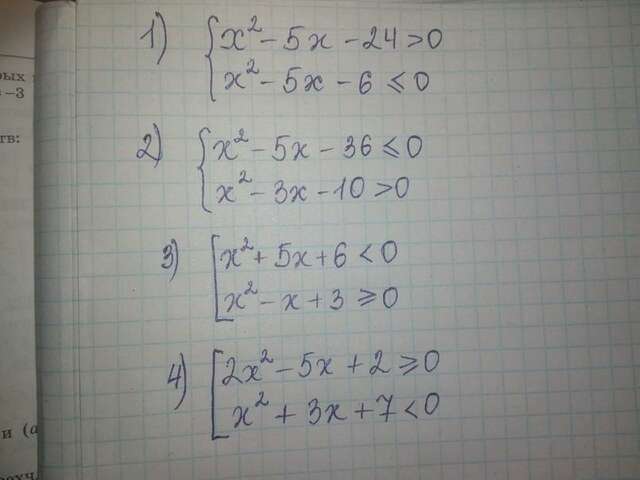 рых
-3
тв:
1) { x² - 5x - 24 > 0
x² - 5x - 6 ≤ 0
2) { x² - 5x - 36 ≤ 0
x² - 3x - 10 > 0
3) [ x² + 5x + 6 < 0
x² - x + 3 ≥ 0
4) [ 2x² - 5x + 2 ≥ 0
x² + 3x + 7 < 0
и (a